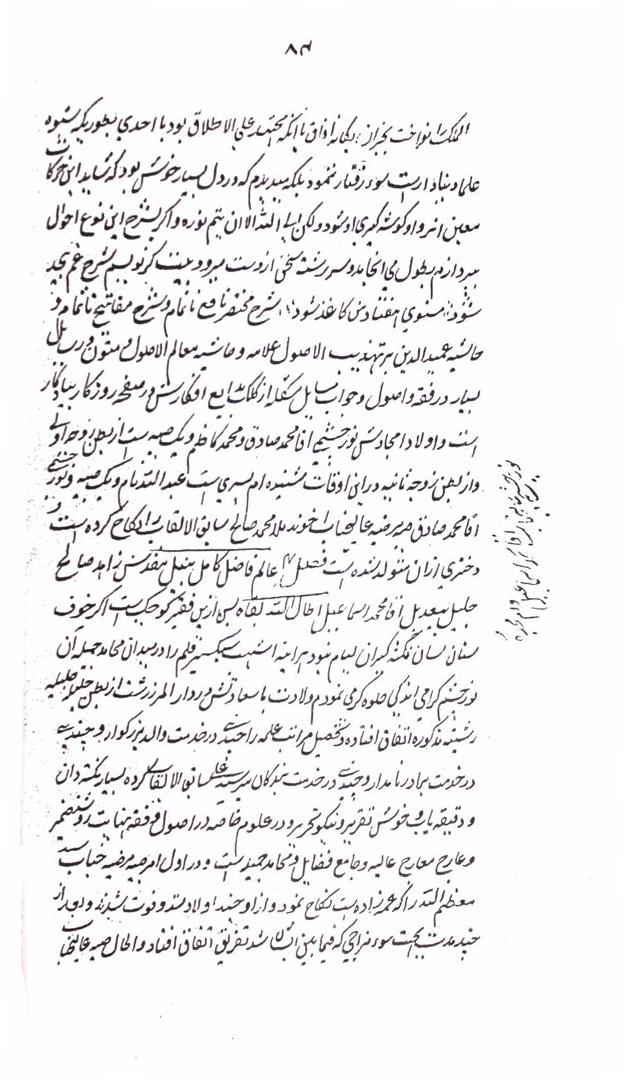 ۸۴
الملک انواخت بجز از یگانه آفاق با آنکه مجتهد علی الاطلاق بود با احدی بطوریکه شیوه
علماء دنیادار است سوء رفتار ننمود بلکه میدیدم که در دل بسیار خوش بود که شاید این حرکات
معین انزوا و گوشه گیری او شود ولکن ابی الله الا ان یتم نوره و اگر بشرح این نوع احوال
بپردازم بطول می انجامد و سر رشته سخن از دست میرود بیت گر نویسم شرح غم بیحد
شود مثنوی هفتاد من کاغذ شود شرح مختصر نافع ناتمام و شرح مفاتیح ناتمام و
حاشیه عمید الدین بر تهذیب الاصول علامه و حاشیه معالم الاصول و متون و رسائل
بسیار در فقه و اصول و جواب مسایل متفرقه از کلک بدایع افکارش در صفحه روزگار بیادگار
است و اولاد امجادش نور چشم آقا محمد صادق و محمد کاظم و یک صبیه است از بطن زوجه اولی
و از بطن زوجه ثانیه در این اوقات شنیده ام پسری است عبد الله نام و یک صبیه و نور چشمی
آقا محمد صادق صبیه مرضیه عالیجناب آخوند ملا محمد صالح سابق الالقاب را نکاح کرده است و
دختری از آن متولد شده است فصل عالم فاضل کامل بنیل مقدس زاهد صالح
جلیل بیعدیل آقا محمد اسماعیل اطال الله بقاه پس ازین فقیر کوچک است اگر خوف
سنان لسان نکته گیران لیام نبود هر آینه اشهب سبکسیر قلم را در میدان محامد جمیله آن
نور چشم گرامی اندکی جلوه گر می نمودم ولادت با سعادتش در دار المرز رشت از بطن جلیله جلیلیه
رشتیه مذکوره اتفاق افتاده و تحصیل مراتب علمیه را چندی در خدمت والد بزرگوار و چندی
در خدمت برادر نامدار و چندی در خدمت بندگان میر سید علی سابق الالقاب کرده بسیار نکته دان
و دقیقه یاب و خوش تقریر و نیکو تحریر و در علوم خاصه در اصول و فقه بنهایت روشن ضمیر
و عارج معارج عالیه و جامع فضایل و محامد حمیده است و در اول امر صبیه مرضیه جناب سید
معظم الله را که عمزاده است نکاح نمود و از او چند اولاد شد و فوت شدند و بعد از
چند مدت بجهت سوء مزاجی که فیما بین ایشان شد تفریق اتفاق افتاد و الحال صبیه عالیجناب